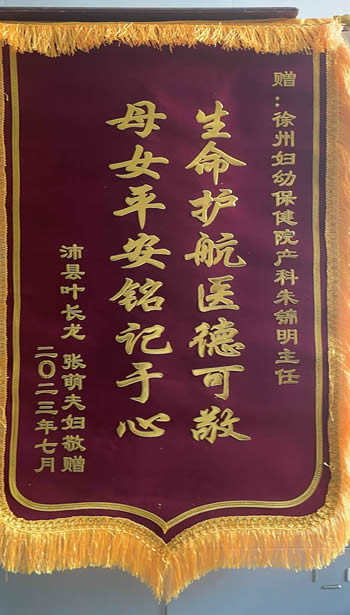 赠：徐州妇幼保健院产科朱锦明主任
生命护航医德可敬
母女平安铭记于心
沛县叶长龙 张萌夫妇敬赠
二〇二三年七月